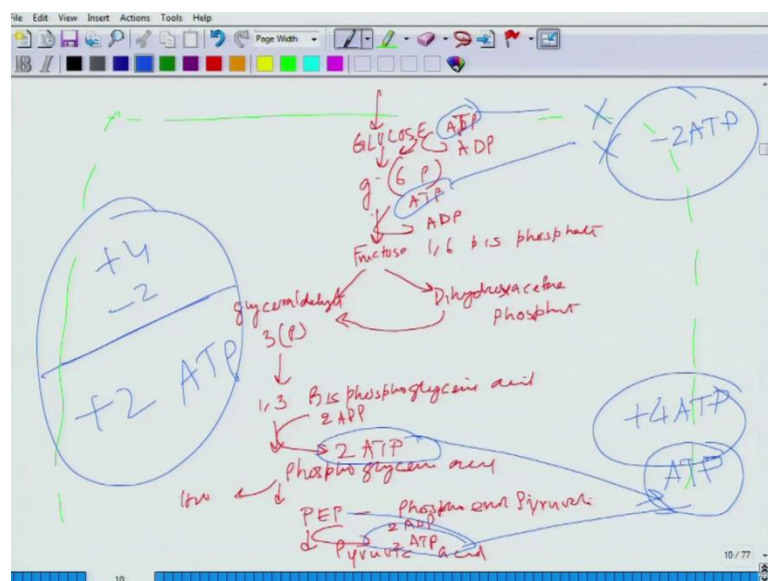 File Edit View Insert Actions Tools Help
Page Width
GLUCOSE ATP
ADP
-2ATP
g-(6 P)
ATP
ADP
Fructose 1,6 bis phosphate
+4
-2
+2 ATP
glyceraldehyde
3(P)
Dihydroxacetone
phosphat
1,3 Bisphosphoglyceric acid
2 ADP
2 ATP
+4ATP
ATP
Phosphoglyceric acid
PEP - Phospho enol Pyruvate
2 ADP
2 ATP
Pyruvic acid
10/77
10